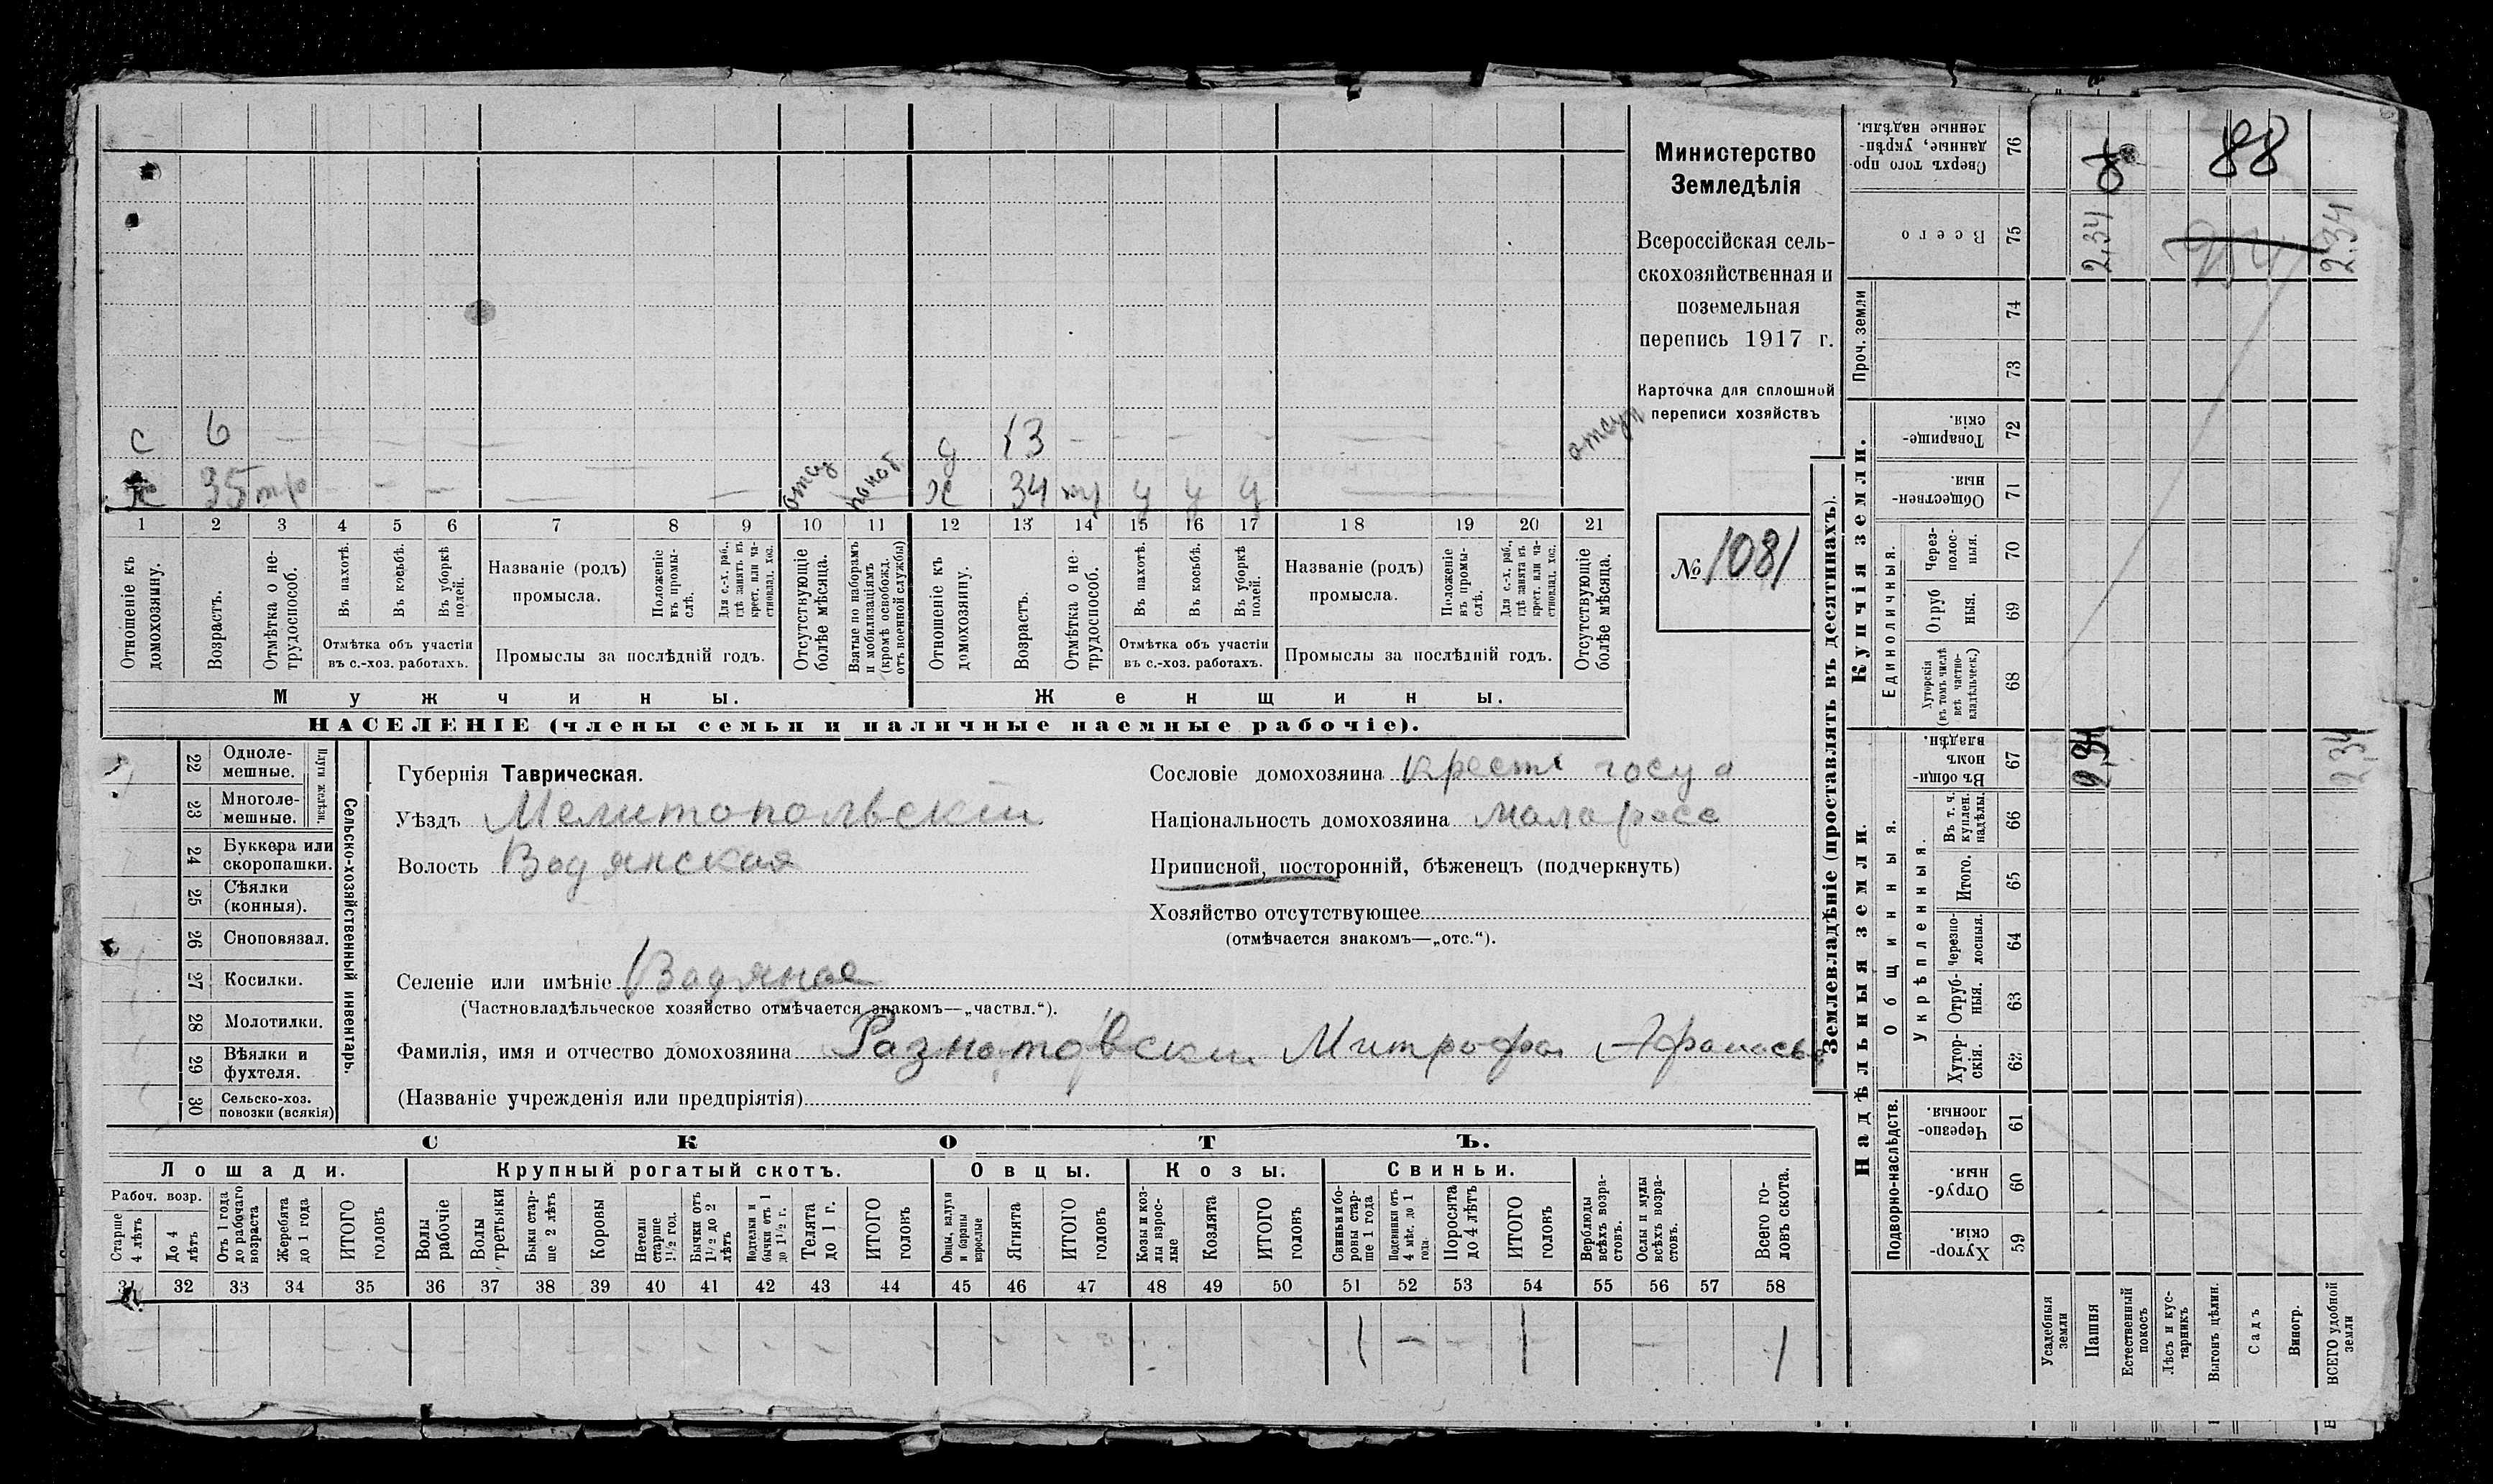 Министерство
Земледѣлія
Всероссійская сель-
скохозяйственная и
поземельная
перепись 1917 г.
Карточка для сплошной
переписи хозяйствъ
№ 1081
с 6
д 13
отсут
35
х 34 у у у
1 2 3 4 5 6 7 8 9 10 11 12 13 14 15 16 17 18 19 20 21
Отношеніе къ
домохозяину.
Возрастъ.
Отмѣтка о не-
трудоспособ.
Въ пахотѣ.
Въ косьбѣ.
Въ уборкѣ
полей.
Отмѣтка объ участіи
въ с.-хоз. работахъ.
Названіе (родъ)
промысла.
Положеніе
въ промы-
слѣ.
Для с.-х. раб.,
гдѣ занятъ въ
крест. или ча-
стновлад. хоз.
Промыслы за послѣдній годъ.
Отсутствующіе
болѣе мѣсяца.
Взятые по наборамъ
и мобилизаціямъ
(кромѣ освобожд.
отъ военной службы)
Отношеніе къ
домохозяину.
Возрастъ.
Отмѣтка о не-
трудоспособ.
Въ пахотѣ.
Въ косьбѣ.
Въ уборкѣ
полей.
Отмѣтка объ участіи
въ с.-хоз. работахъ.
Названіе (родъ)
промысла.
Положеніе
въ промы-
слѣ.
Для с.-х. раб.,
гдѣ занята въ
крест. или ча-
стновлад. хоз.
Промыслы за послѣдній годъ.
Отсутствующіе
болѣе мѣсяца.
Мужчины.
Женщины.
НАСЕЛЕНІЕ (члены семьи и наличные наемные рабочіе).
22 Одноле-
мешные.
23 Многоле-
мешные.
Плуги желѣзн.
24 Буккера или
скоропашки.
25 Сѣялки
(конныя).
26 Сноповязал.
27 Косилки.
28 Молотилки.
29 Вѣялки и
фухтеля.
30 Сельско-хоз.
повозки (всякія)
Сельско-хозяйственный инвентарь.
Губернія Таврическая.
Уѣздъ Мелитопольскій
Волость Водянская
Селеніе или имѣніе Водяное
(Частновладѣльческое хозяйство отмѣчается знакомъ—„частвл.“).
Фамилія, имя и отчество домохозяина Митрофан
(Названіе учрежденія или предпріятія)
Сословіе домохозяина крест госуд
Національность домохозяина малоросс
Приписной, посторонній, бѣженецъ (подчеркнуть)
Хозяйство отсутствующее
(отмѣчается знакомъ—„отс.“).
СКОТЪ.
Лошади.
Крупный рогатый скотъ.
Овцы.
Козы.
Свиньи.
Рабоч. возр.
Старше
4 лѣтъ
До 4
лѣтъ
Отъ 1 года
до рабочаго
возраста
Жеребята
до 1 года
ИТОГО
головъ
Волы
рабочіе
Волы
третьяки
Быки стар-
ше 2 лѣтъ
Коровы
Нетели
старше
1½ год.
Бычки отъ
1½ до 2
лѣтъ
Подтелки и
бычки отъ 1
до 1½ г.
Телята
до 1 г.
ИТОГО
головъ
Овцы, валухи
и бараны
взрослые
Ягнята
ИТОГО
головъ
Козы и коз-
лы взрос-
лые
Козлята
ИТОГО
головъ
Свиньи и бо-
ровы стар-
ше 1 года
Подсвинки отъ
4 мѣс. до 1
года
Поросята
до 4 лѣтъ
ИТОГО
головъ
Верблюды
всѣхъ возра-
стовъ.
Ослы и мулы
всѣхъ возра-
стовъ.
Всего го-
ловъ скота.
31 32 33 34 35 36 37 38 39 40 41 42 43 44 45 46 47 48 49 50 51 52 53 54 55 56 57 58
1 1 1
Землевладѣніе (проставлять въ десятинахъ).
Купчія земли.
Надѣльныя земли.
Проч. земли
Единоличныя.
Общинныя.
Укрѣпленныя.
Подворно-наслѣдств.
Сверхъ того про-
данные, укрѣп-
ленные надѣлы.
76
88
Всего
75
2,34
2.34
74
73
Товарище-
скія
72
Обществен-
ныя.
71
Через-
полос-
ныя.
70
Отруб
ныя.
69
Хуторскія
(въ томъ числѣ
всѣ частно-
владѣльческ.)
68
Въ общи-
номъ
владѣн.
67
2,34
2,34
Въ т. ч.
куплен.
надѣлы.
66
Итого.
65
Черезпо-
лосныя.
64
Отруб-
ныя.
63
Хутор-
скія.
62
Черезпо-
лосныя.
61
Отруб-
ныя.
60
Хутор-
скія.
59
Усадебныя
земли
Пашня
Естественный
покосъ
Лѣсъ и кус-
тарникъ
Выгонъ цѣлин.
Садъ
Виногр.
ВСЕГО удобной
земли